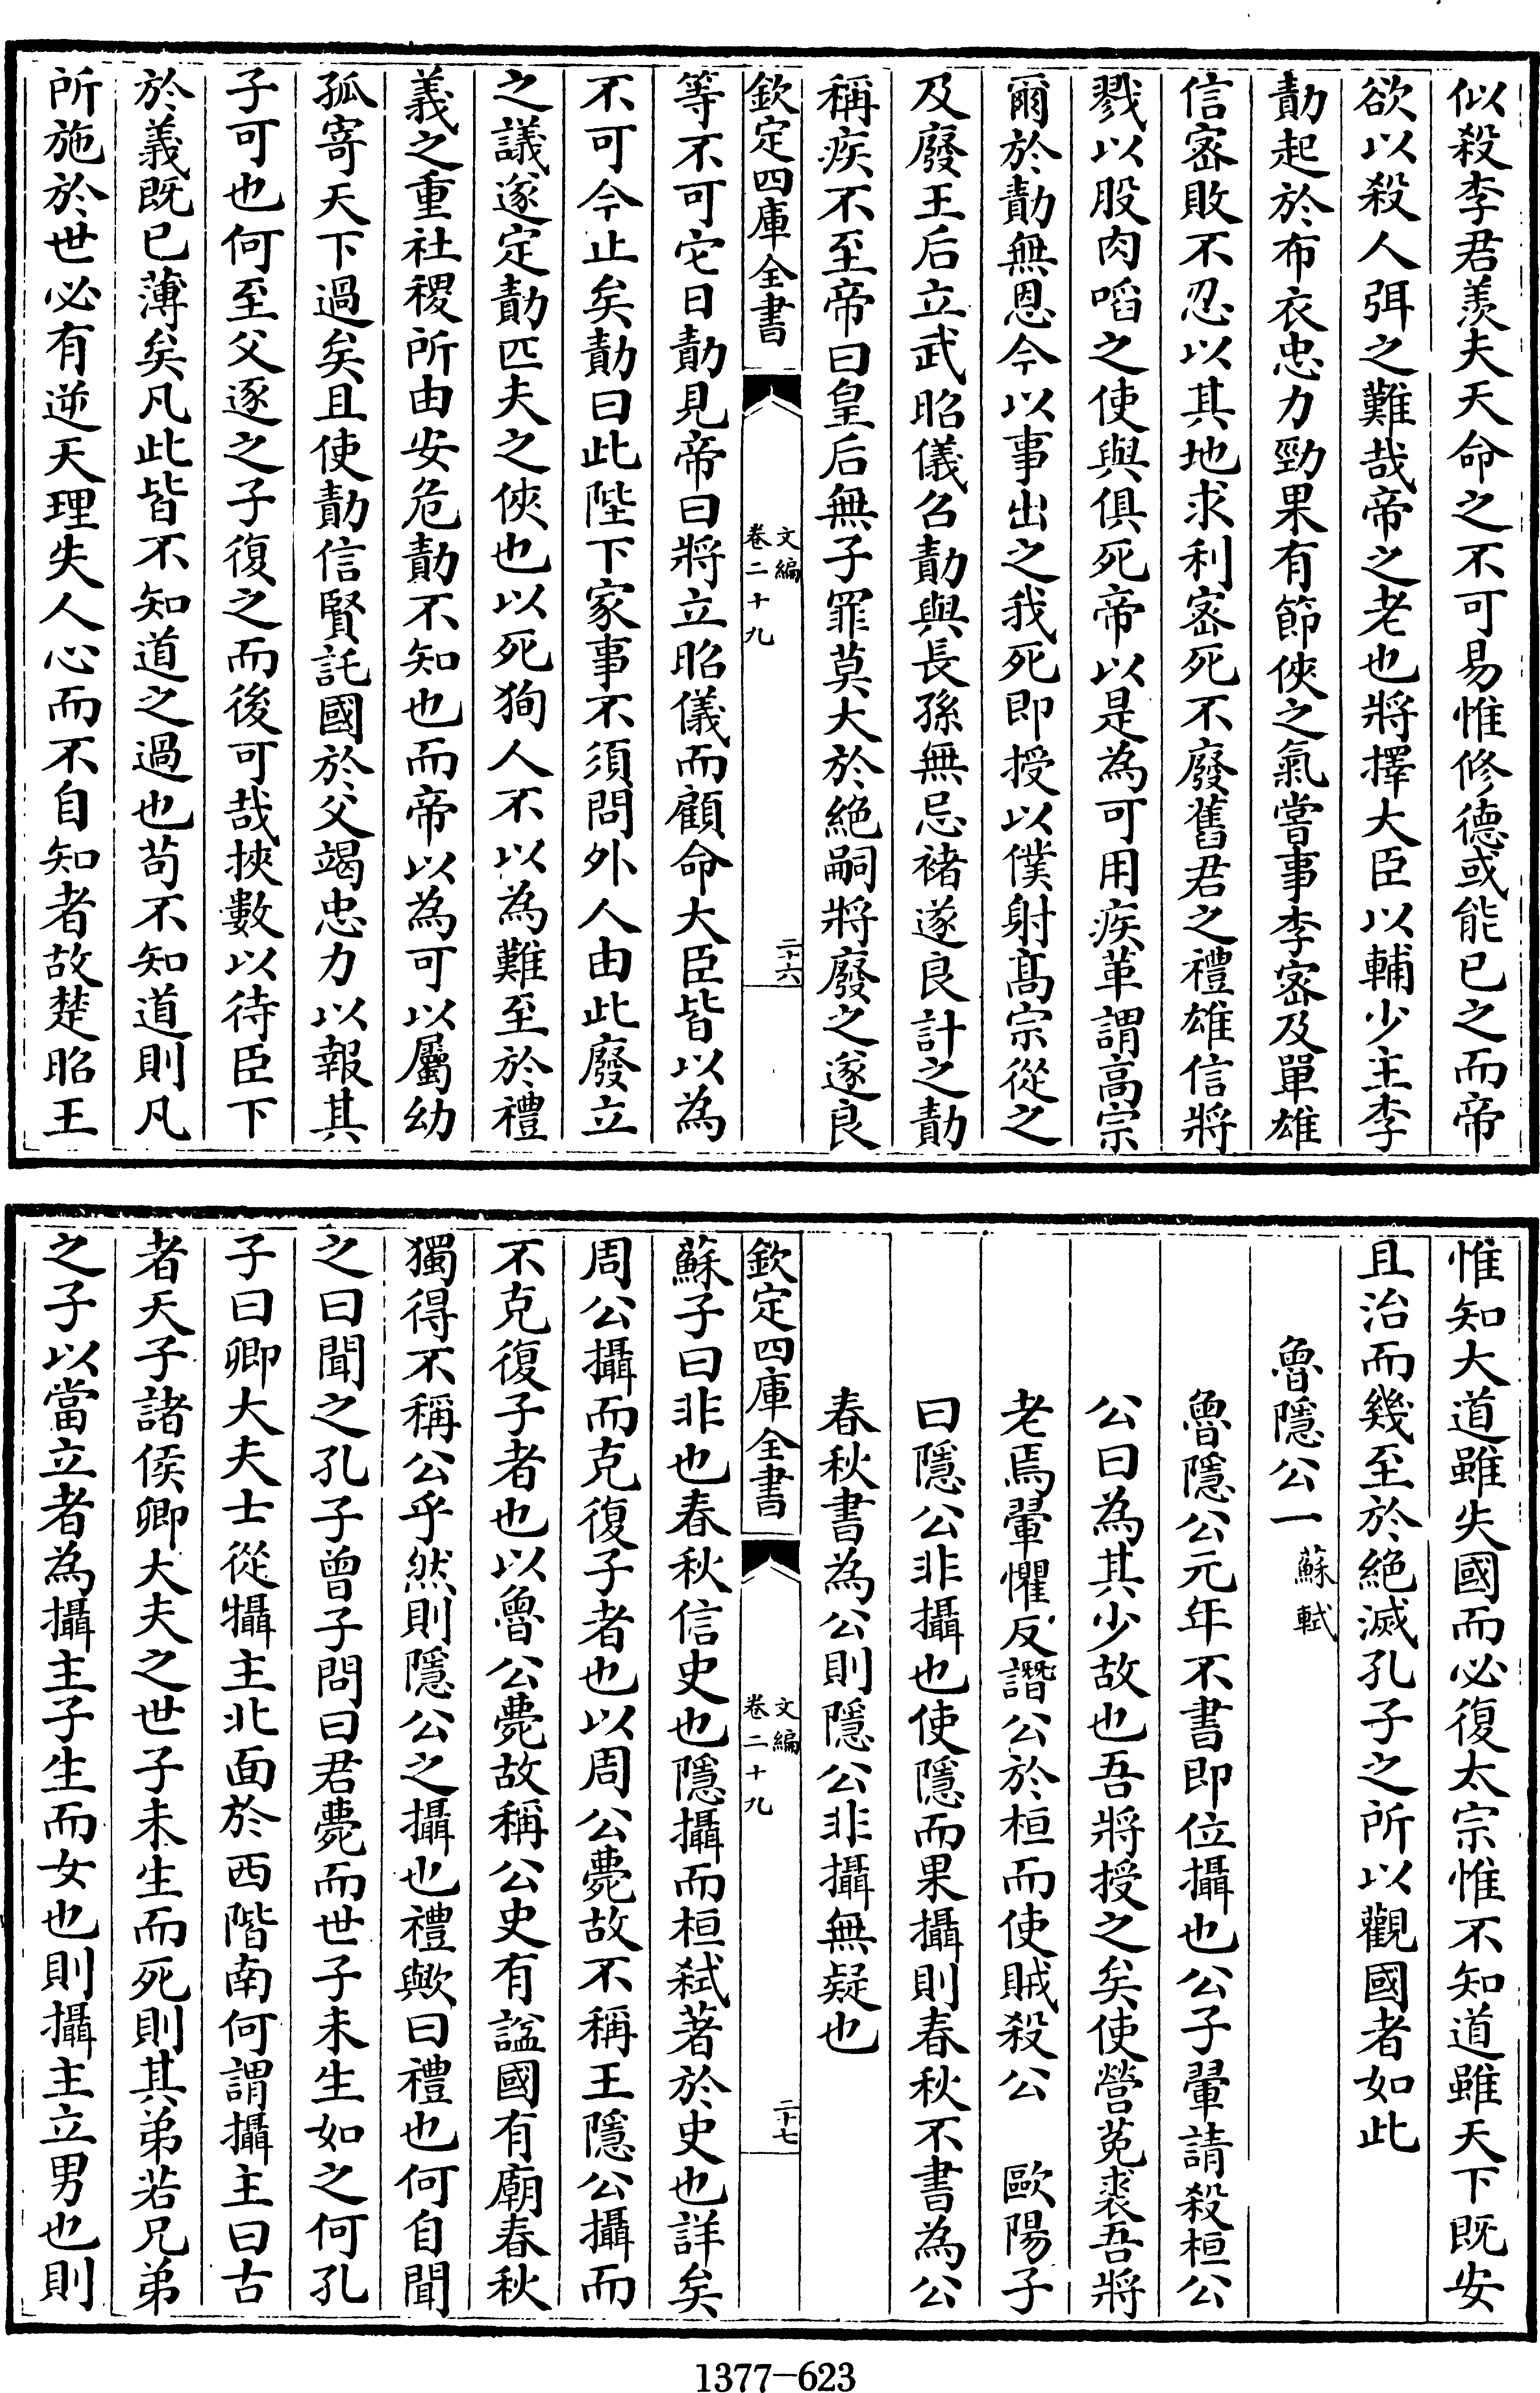 似殺李君羨夫天命之不可易惟修德或能已之而帝
欲以殺人弭之難哉帝之老也將擇大臣以輔少主李
勣起於布衣忠力勁果有節俠之氣嘗事李宻及單雄
信宻敗不忍以其地求利宻死不廢舊君之禮雄信將
戮以股肉㗖之使與俱死帝以是為可用疾革謂高宗
爾於勣無恩今以事出之我死即授以僕射髙宗從之
及廢王后立武昭儀召勣與長孫無忌褚遂良計之勣
稱疾不至帝曰皇后無子罪莫大於絶嗣將廢之遂良
欽定四庫全書
文編
卷二十九
二十六
等不可它日勣見帝曰將立昭儀而顧命大臣皆以為
不可今止矣勣曰此陛下家事不須問外人由此廢立
之議遂定勣匹夫之俠也以死狥人不以為難至於禮
義之重社稷所由安危勣不知也而帝以為可以屬幼
孤寄天下過矣且使勣信賢託國於父竭忠力以報其
子可也何至父逐之子復之而後可哉挾數以待臣下
於義既已薄矣凡此皆不知道之過也苟不知道則凡
所施於世必有逆天理失人心而不自知者故楚昭王
惟知大道雖失國而必復太宗惟不知道雖天下既安
且治而幾至於絶滅孔子之所以觀國者如此
魯隱公一 蘇軾
魯隱公元年不書即位攝也公子翬請殺桓公
公曰為其少故也吾將授之矣使營菟裘吾將
老焉翬懼反譖公於桓而使賊殺公 歐陽子
曰隱公非攝也使隱而果攝則春秋不書為公
春秋書為公則隱公非攝無疑也
欽定四庫全書
文編
卷二十九
二十七
蘇子曰非也春秋信史也隱攝而桓弑著於史也詳矣
周公攝而克復子者也以周公薨故不稱王隱公攝而
不克復子者也以魯公薨故稱公史有謚國有廟春秋
獨得不稱公乎然則隱公之攝也禮歟曰禮也何自聞
之曰聞之孔子曾子問曰君薨而世子未生如之何孔
子曰卿大夫士從攝主北面於西階南何謂攝主曰古
者天子諸侯卿大夫之世子未生而死則其弟若兄弟
之子以當立者為攝主子生而女也則攝主立男也則
1377-623